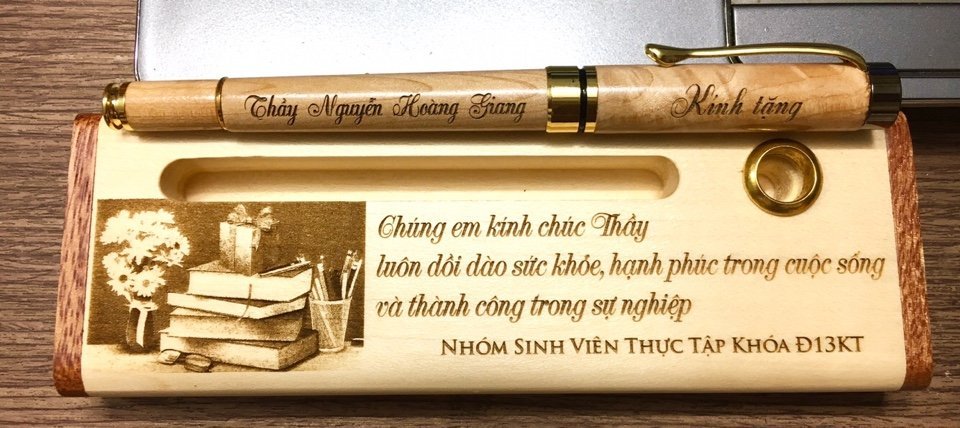 Thầy Nguyễn Hoàng Giang
Kính tặng
Chúng em kính chúc Thầy
luôn dồi dào sức khỏe, hạnh phúc trong cuộc sống
và thành công trong sự nghiệp
NHÓM SINH VIÊN THỰC TẬP KHÓA Đ13KT